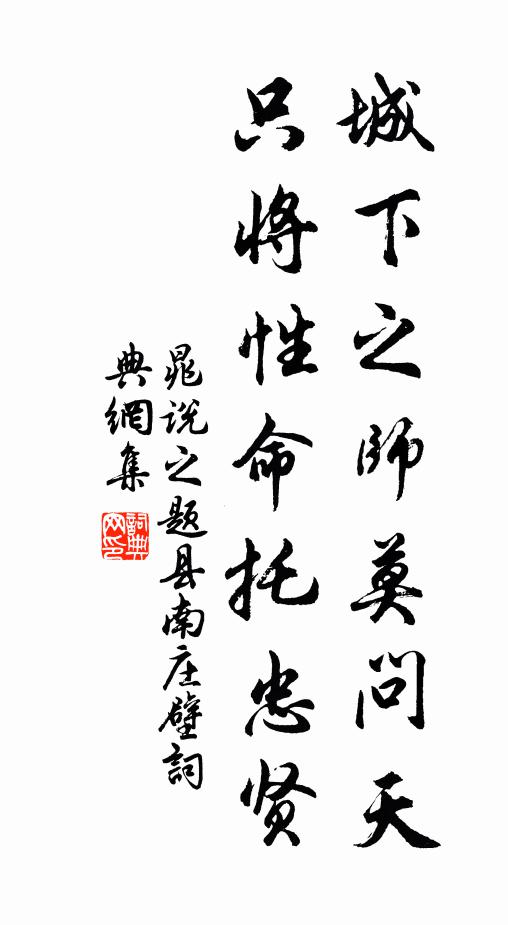 城下之師莫问天
只将性命托忠贤
晁说之题县南庄壁詞
典網集
詞典網印